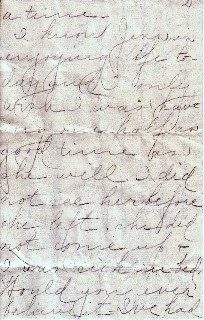 a time.
I know Jess is
enjoying life to-
day and I only
wish I was have
ing one half as
good time for
she will I did
not see her before
she left. she did
not come up &
I was sick in bed.
Would you ever
believe it I've had